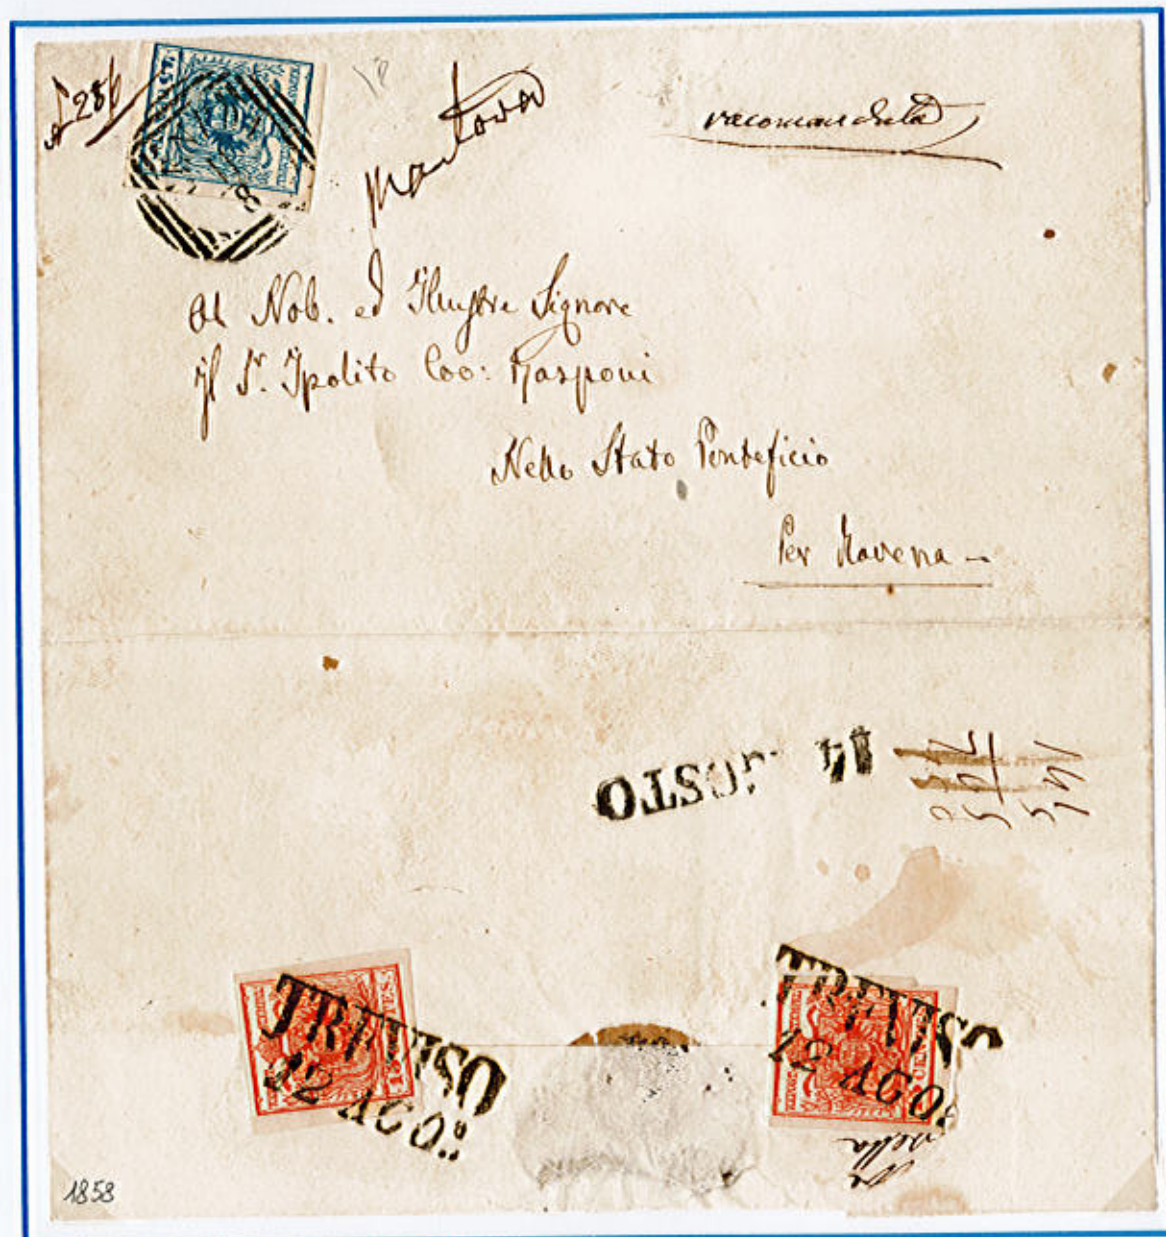 Mantova
racomandata
Al Nob. ed Illustre Signore
Il Sr. Ipolito Co: Rasponi
Nello Stato Pontificio
Per Ravena -
14 AGOSTO
TREVISO
12 AGO:
TREVISO
12 AGO:
CENTES.
1858